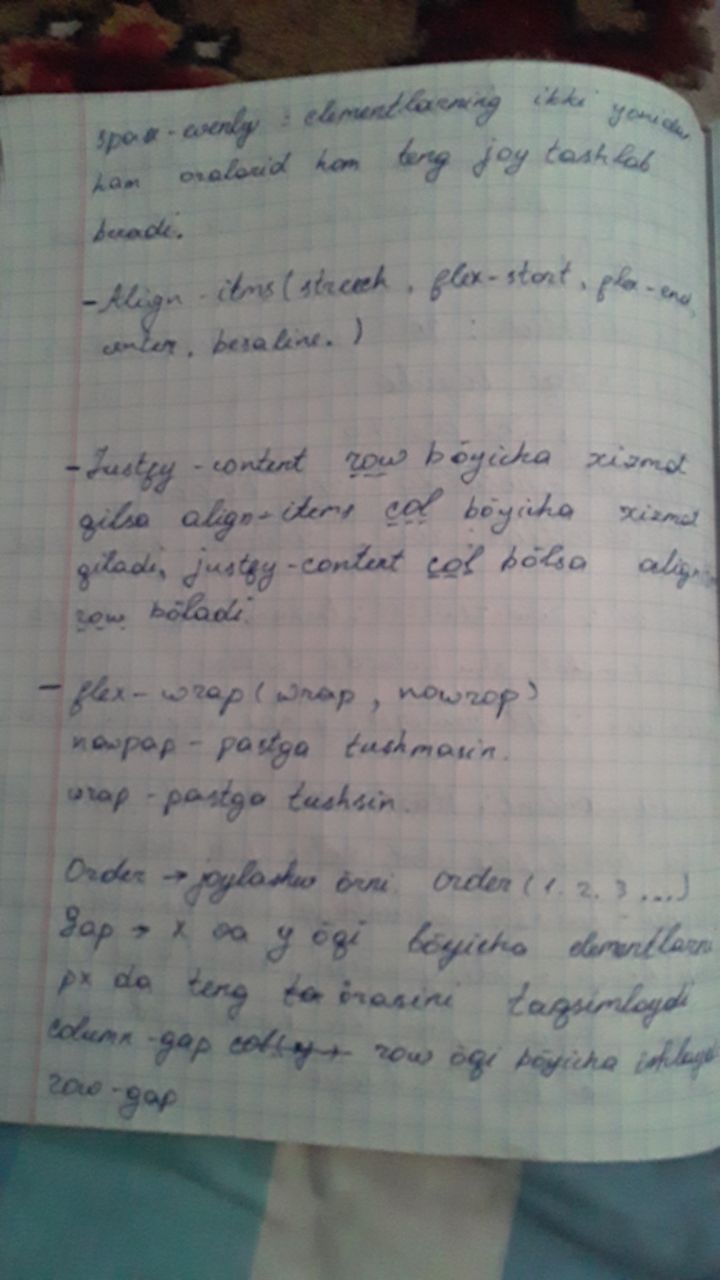 space-evenly : elementlarning ikki yonidan
ham oralarid ham teng joy tashlab
beradi.
- Align-itms (strech, flex-start, flex-end,
center, besaline.)
- Justfy-content row bōyicha xizmat
qilsa align-items col bōyicha xizmat
qiladi, justfy-content col bōlsa align
row bōladi.
- flex-wrap (wrap, nowrap)
nowpap - pastga tushmasin.
wrap - pastga tushsin.
Order → joylashuv ōrni. order (1. 2. 3 ....)
gap → x va y ōqi bōyicha elementlarni
px da teng ōrasini taqsimlaydi
column-gap row ōqi bōyicha ishlaydi
row-gap